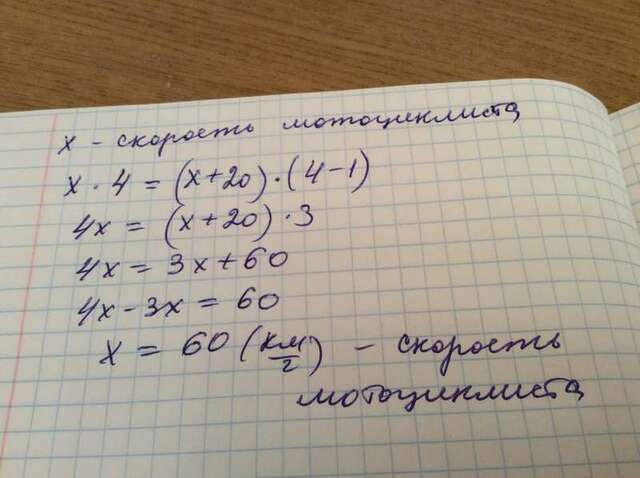 x - скорость мотоциклиста
x · 4 = (x+20) · (4-1)
4x = (x+20) · 3
4x = 3x + 60
4x - 3x = 60
x = 60 (км/ч) - скорость
мотоциклиста